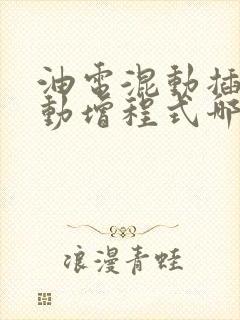 油电混动插
动增程式哪
浪漫青蛙